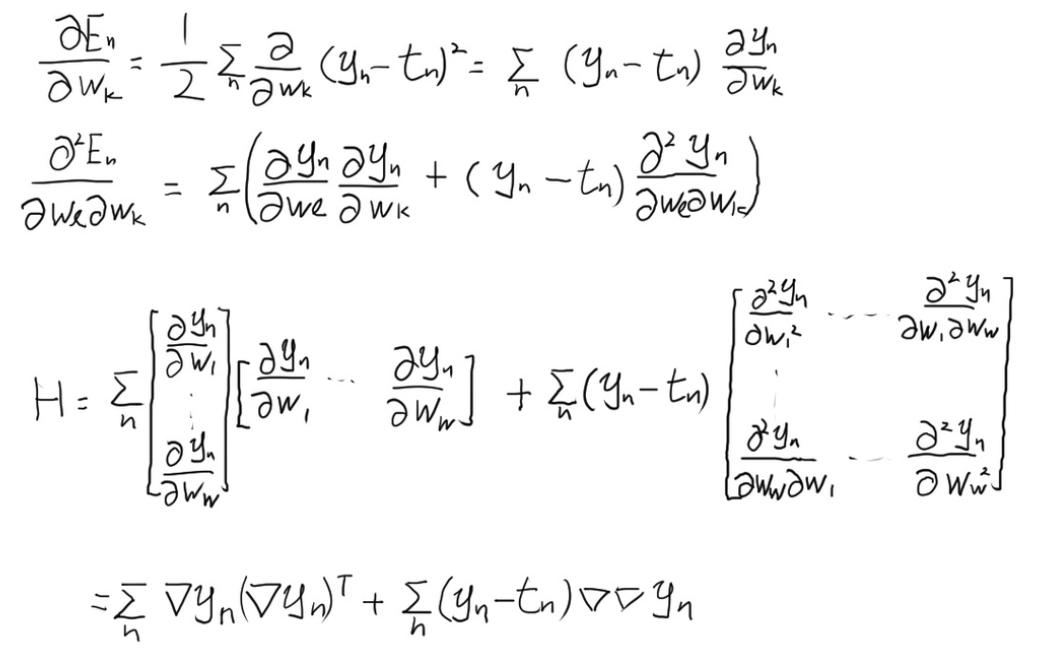 ∂Eₙ/∂wₖ = 1/2 Σₙ ∂/∂wₖ (yₙ − tₙ)² = Σₙ (yₙ − tₙ) ∂yₙ/∂wₖ
∂²Eₙ/∂wₗ∂wₖ = Σₙ (∂yₙ/∂wₗ ∂yₙ/∂wₖ + (yₙ − tₙ) ∂²yₙ/∂wₗ∂wₖ)
H = Σₙ [∂yₙ/∂w₁ ⋮ ∂yₙ/∂w_w] [∂yₙ/∂w₁ ⋯ ∂yₙ/∂w_w] + Σₙ (yₙ − tₙ) [∂²yₙ/∂w₁² ⋯ ∂²yₙ/∂w₁∂w_w ⋮ ∂²yₙ/∂w_w∂w₁ ⋯ ∂²yₙ/∂w_w²]
= Σₙ ∇yₙ(∇yₙ)ᵀ + Σₙ (yₙ − tₙ)∇∇yₙ